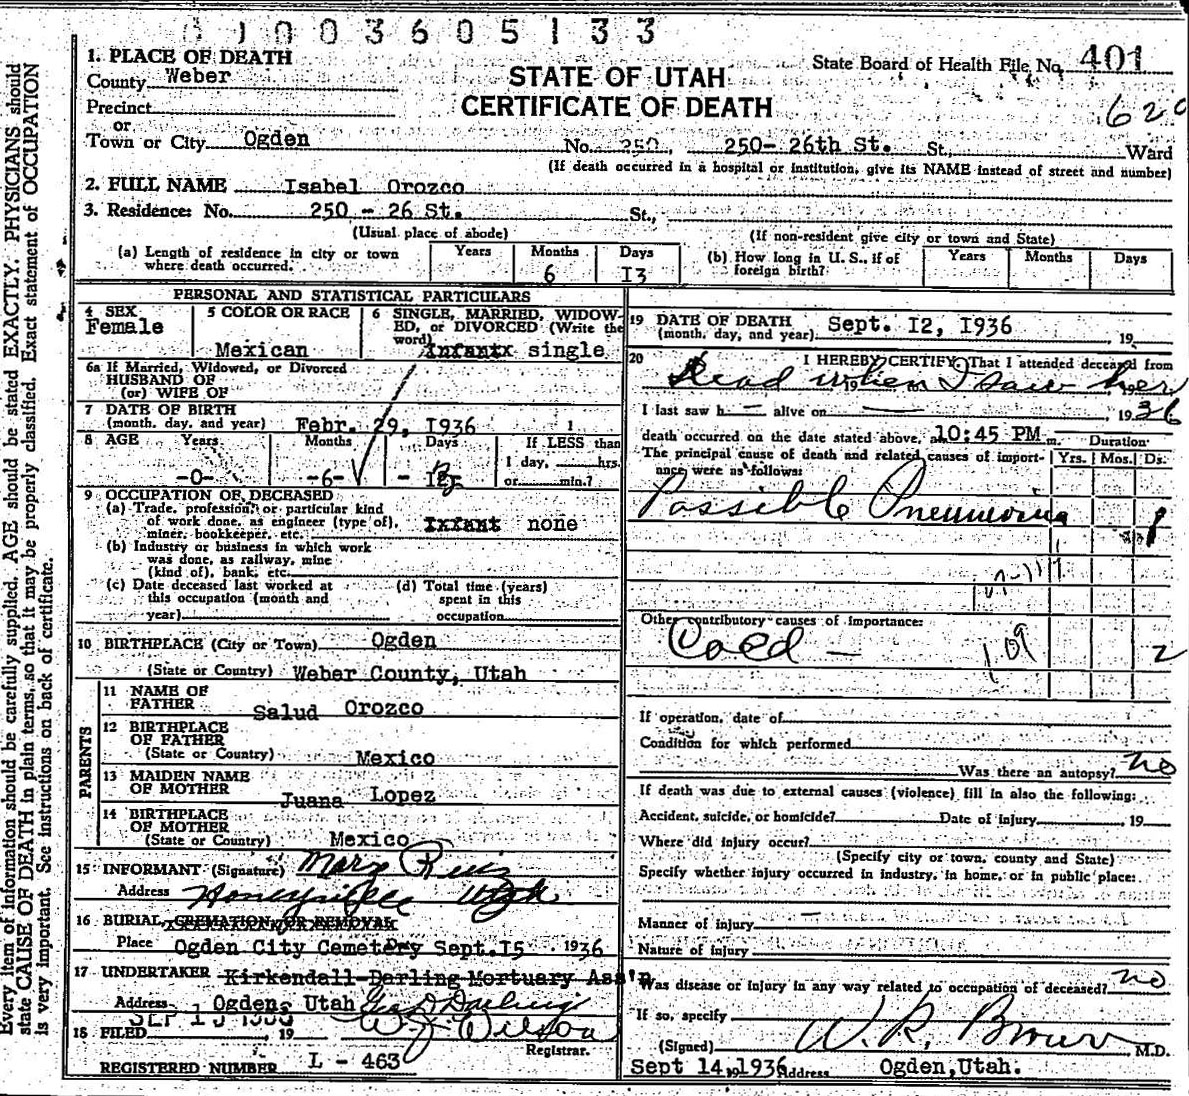 01003605133
1. PLACE OF DEATH
State Board of Health File No. 401
County Weber
STATE OF UTAH
CERTIFICATE OF DEATH
Precinct
or
Town or City Ogden No. 250, 250- 26th St. St., Ward
(If death occurred in a hospital or institution, give its NAME instead of street and number)
2. FULL NAME Isabel Orozco
3. Residence: No. 250 - 26 St. St.,
(Usual place of abode) (If non-resident give city or town and State)
(a) Length of residence in city or town where death occurred. Years Months 6 Days 13
(b) How long in U. S., if of foreign birth? Years Months Days
PERSONAL AND STATISTICAL PARTICULARS
4 SEX Female
5 COLOR OR RACE Mexican
6 SINGLE, MARRIED, WIDOWED, or DIVORCED (Write the word) Infantx single
6a If Married, Widowed, or Divorced
HUSBAND OF
(or) WIFE OF
7 DATE OF BIRTH
(month, day, and year) Febr. 29, 1936
8 AGE Years Months Days If LESS than
1 day, hrs.
-0- -6- or min.?
9 OCCUPATION OF DECEASED
(a) Trade, profession, or particular kind
of work done, as engineer (type of), Infant none
miner, bookkeeper, etc.
(b) Industry or business in which work
was done, as railway, mine
(kind of), bank, etc.
(c) Date deceased last worked at
this occupation (month and
year)
(d) Total time (years)
spent in this
occupation
10 BIRTHPLACE (City or Town) Ogden
(State or Country) Weber County, Utah
PARENTS
11 NAME OF
FATHER Salud Orozco
12 BIRTHPLACE
OF FATHER
(State or Country) Mexico
13 MAIDEN NAME
OF MOTHER Juana Lopez
14 BIRTHPLACE
OF MOTHER
(State or Country) Mexico
15 INFORMANT (Signature) Mary Ruiz
Address Honeyville Utah
16 BURIAL, CREMATION, OR REMOVAL
Place Ogden City Cemetery Sept. 15 1936
17 UNDERTAKER Kirkendall-Darling Mortuary Ass'n
Address Ogden, Utah Geo D Darling
18 FILED SEP 1936, 19 W. J. Wilson
Registrar.
REGISTERED NUMBER L - 463
19 DATE OF DEATH
(month, day, and year) Sept. 12, 1936 19
20 I HEREBY CERTIFY, That I attended deceased from
Dead when I saw her
I last saw h— alive on — 1936
death occurred on the date stated above, at 10:45 PM m. Duration
The principal cause of death and related causes of importance were as follows: Yrs. Mos. Ds.
Possible Pneumonia 1
Other contributory causes of importance:
Cold — 109 2
If operation, date of
Condition for which performed
Was there an autopsy? no
If death was due to external causes (violence) fill in also the following:
Accident, suicide, or homicide? Date of injury , 19
Where did injury occur?
(Specify city or town, county and State)
Specify whether injury occurred in industry, in home, or in public place:
Manner of injury
Nature of injury
Was disease or injury in any way related to occupation of deceased? no
If so, specify
(Signed) W. R. Brown M.D.
Sept 14, 1936 Address Ogden, Utah.
Every item of information should be carefully supplied. AGE should be stated EXACTLY. PHYSICIANS should
state CAUSE OF DEATH in plain terms, so that it may be properly classified. Exact statement of OCCUPATION
is very important. See instructions on back of certificate.